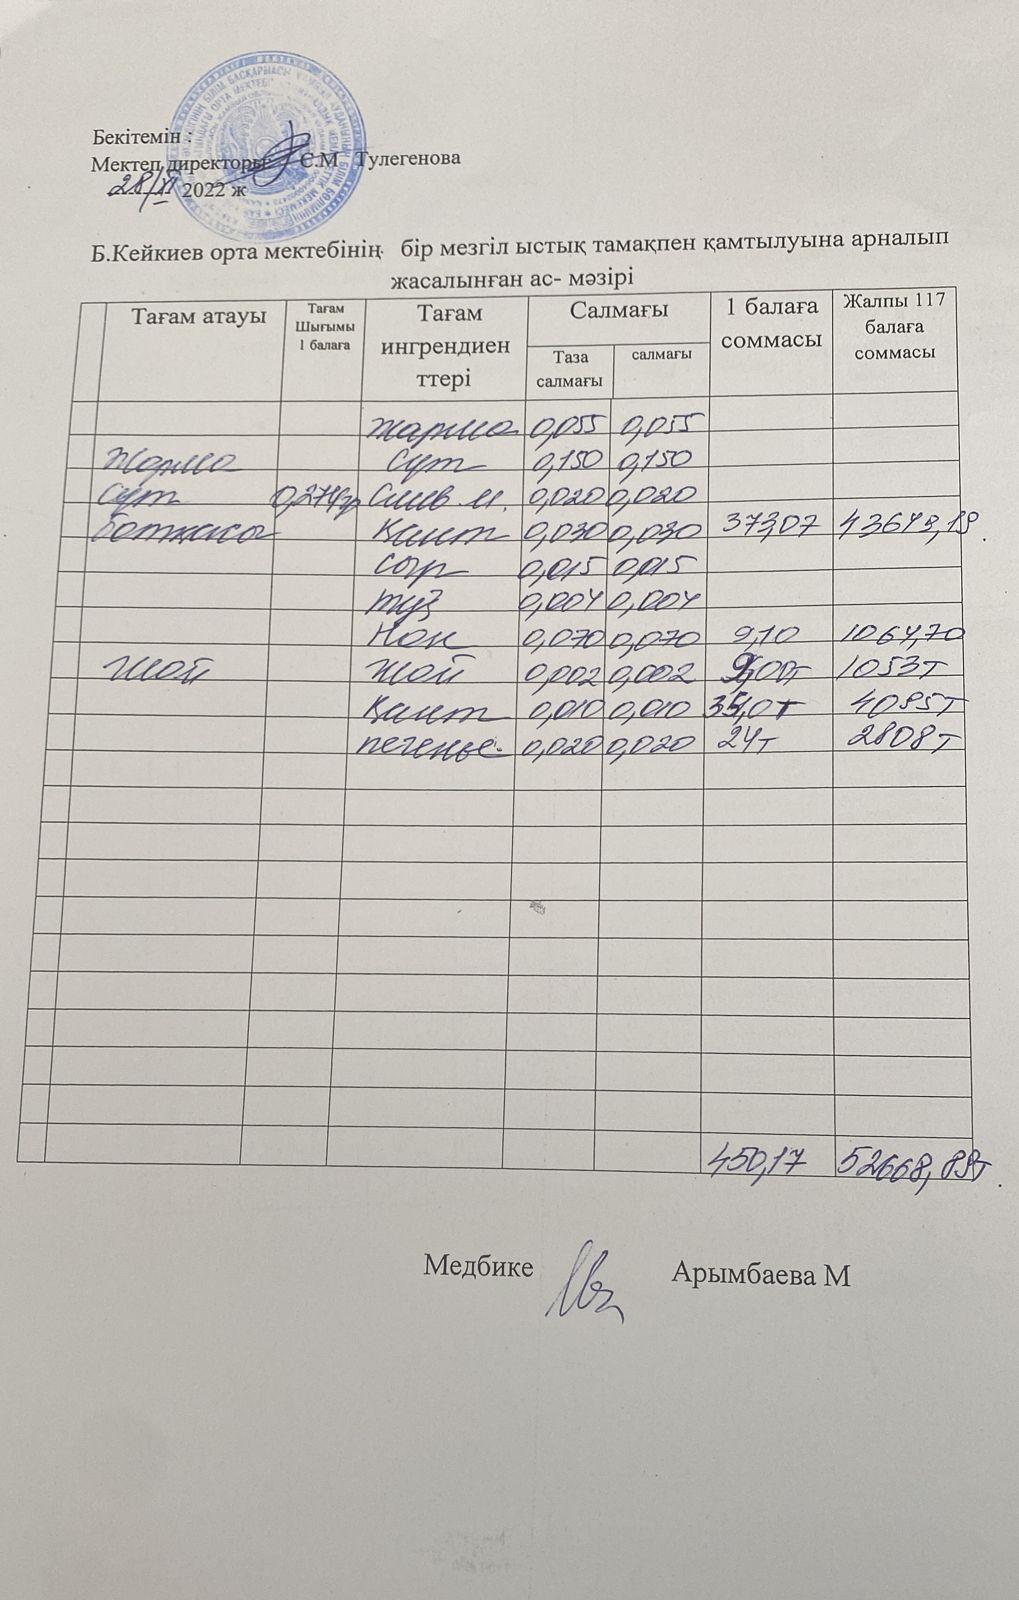 Бекітемін :
Мектеп директоры: С.М Тулегенова
28/XI 2022 ж
Б.Кейкиев орта мектебінің бір мезгіл ыстық тамақпен қамтылуына арналып
жасалынған ас- мәзірі
Тағам атауы
Тағам
Шығымы
1 балаға
Тағам
ингрендиен
ттері
Салмағы
Таза
салмағы
салмағы
1 балаға
соммасы
Жалпы 117
балаға
соммасы
жарма 0,055 0,055
Жарма сүт 0,150 0,150
сүт 0,274гр Слив м. 0,020 0,020
ботқасы Қант 0,030 0,030 373,07 43649,19
сыр 0,015 0,015
тұз 0,004 0,004
Нан 0,070 0,070 9,10 1064,70
Шай Шай 0,002 0,002 9,00т 1053т
Қант 0,010 0,010 35,0т 4095т
печенье 0,020 0,020 24т 2808т
450,17 52668,89т
Медбике Арымбаева М